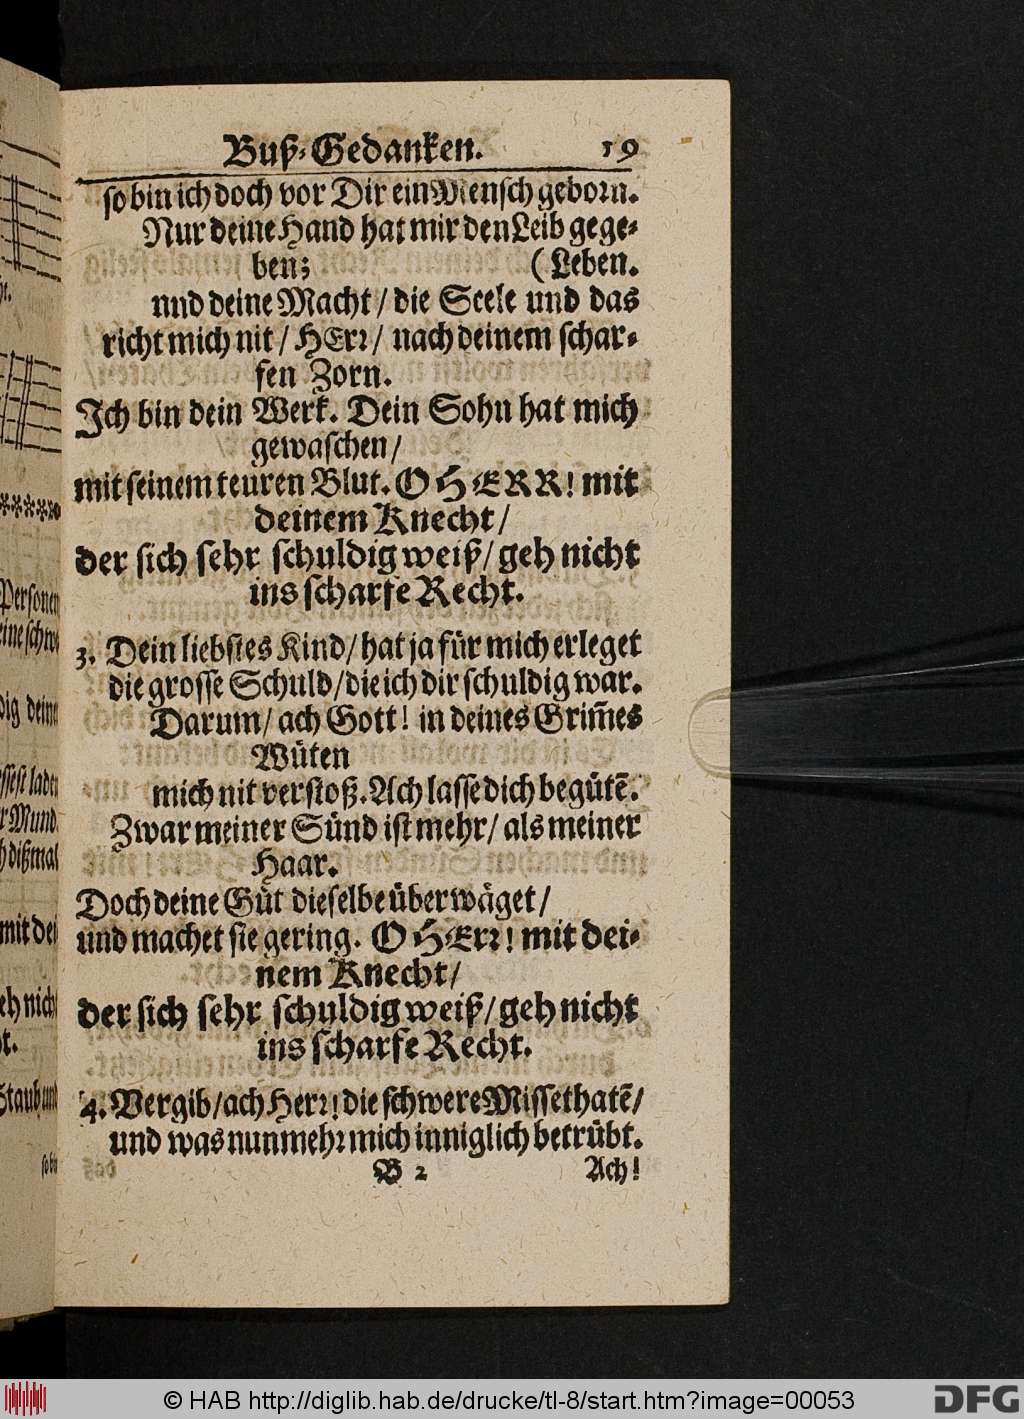 Buß-Gedanken. 19
so bin ich doch vor Dir ein Mensch geborn.
Nur deine Hand hat mir den Leib gege-
ben; (Leben.
nnd deine Macht/ die Seele und das
richt mich nit/ HErr/ nach deinem schar-
fen Zorn.
Ich bin dein Werk. Dein Sohn hat mich
gewaschen/
mit seinem teuren Blut. O HERR! mit
deinem Knecht/
der sich sehr schuldig weiß/ geh nicht
ins scharfe Recht.
3. Dein liebstes Kind/ hat ja für mich erleget
die grosse Schuld/ die ich dir schuldig war.
Darum/ ach Gott! in deines Grim̃es
Wüten
mich nit verstoß. Ach lasse dich begütẽ.
Zwar meiner Sünd ist mehr/ als meiner
Haar.
Doch deine Güt dieselbe überwäget/
und machet sie gering. O HErr! mit dei-
nem Knecht/
der sich sehr schuldig weiß/ geh nicht
ins scharfe Recht.
4. Vergib/ ach Herr! die schwere Missethatẽ/
und was nunmehr mich inniglich betrübt.
B 2 Ach!
Personen
dig deine
r Mund
dißmal
mit dei
eh nich
t.
Staub und
so bin
© HAB http://diglib.hab.de/drucke/tl-8/start.htm?image=00053
DFG